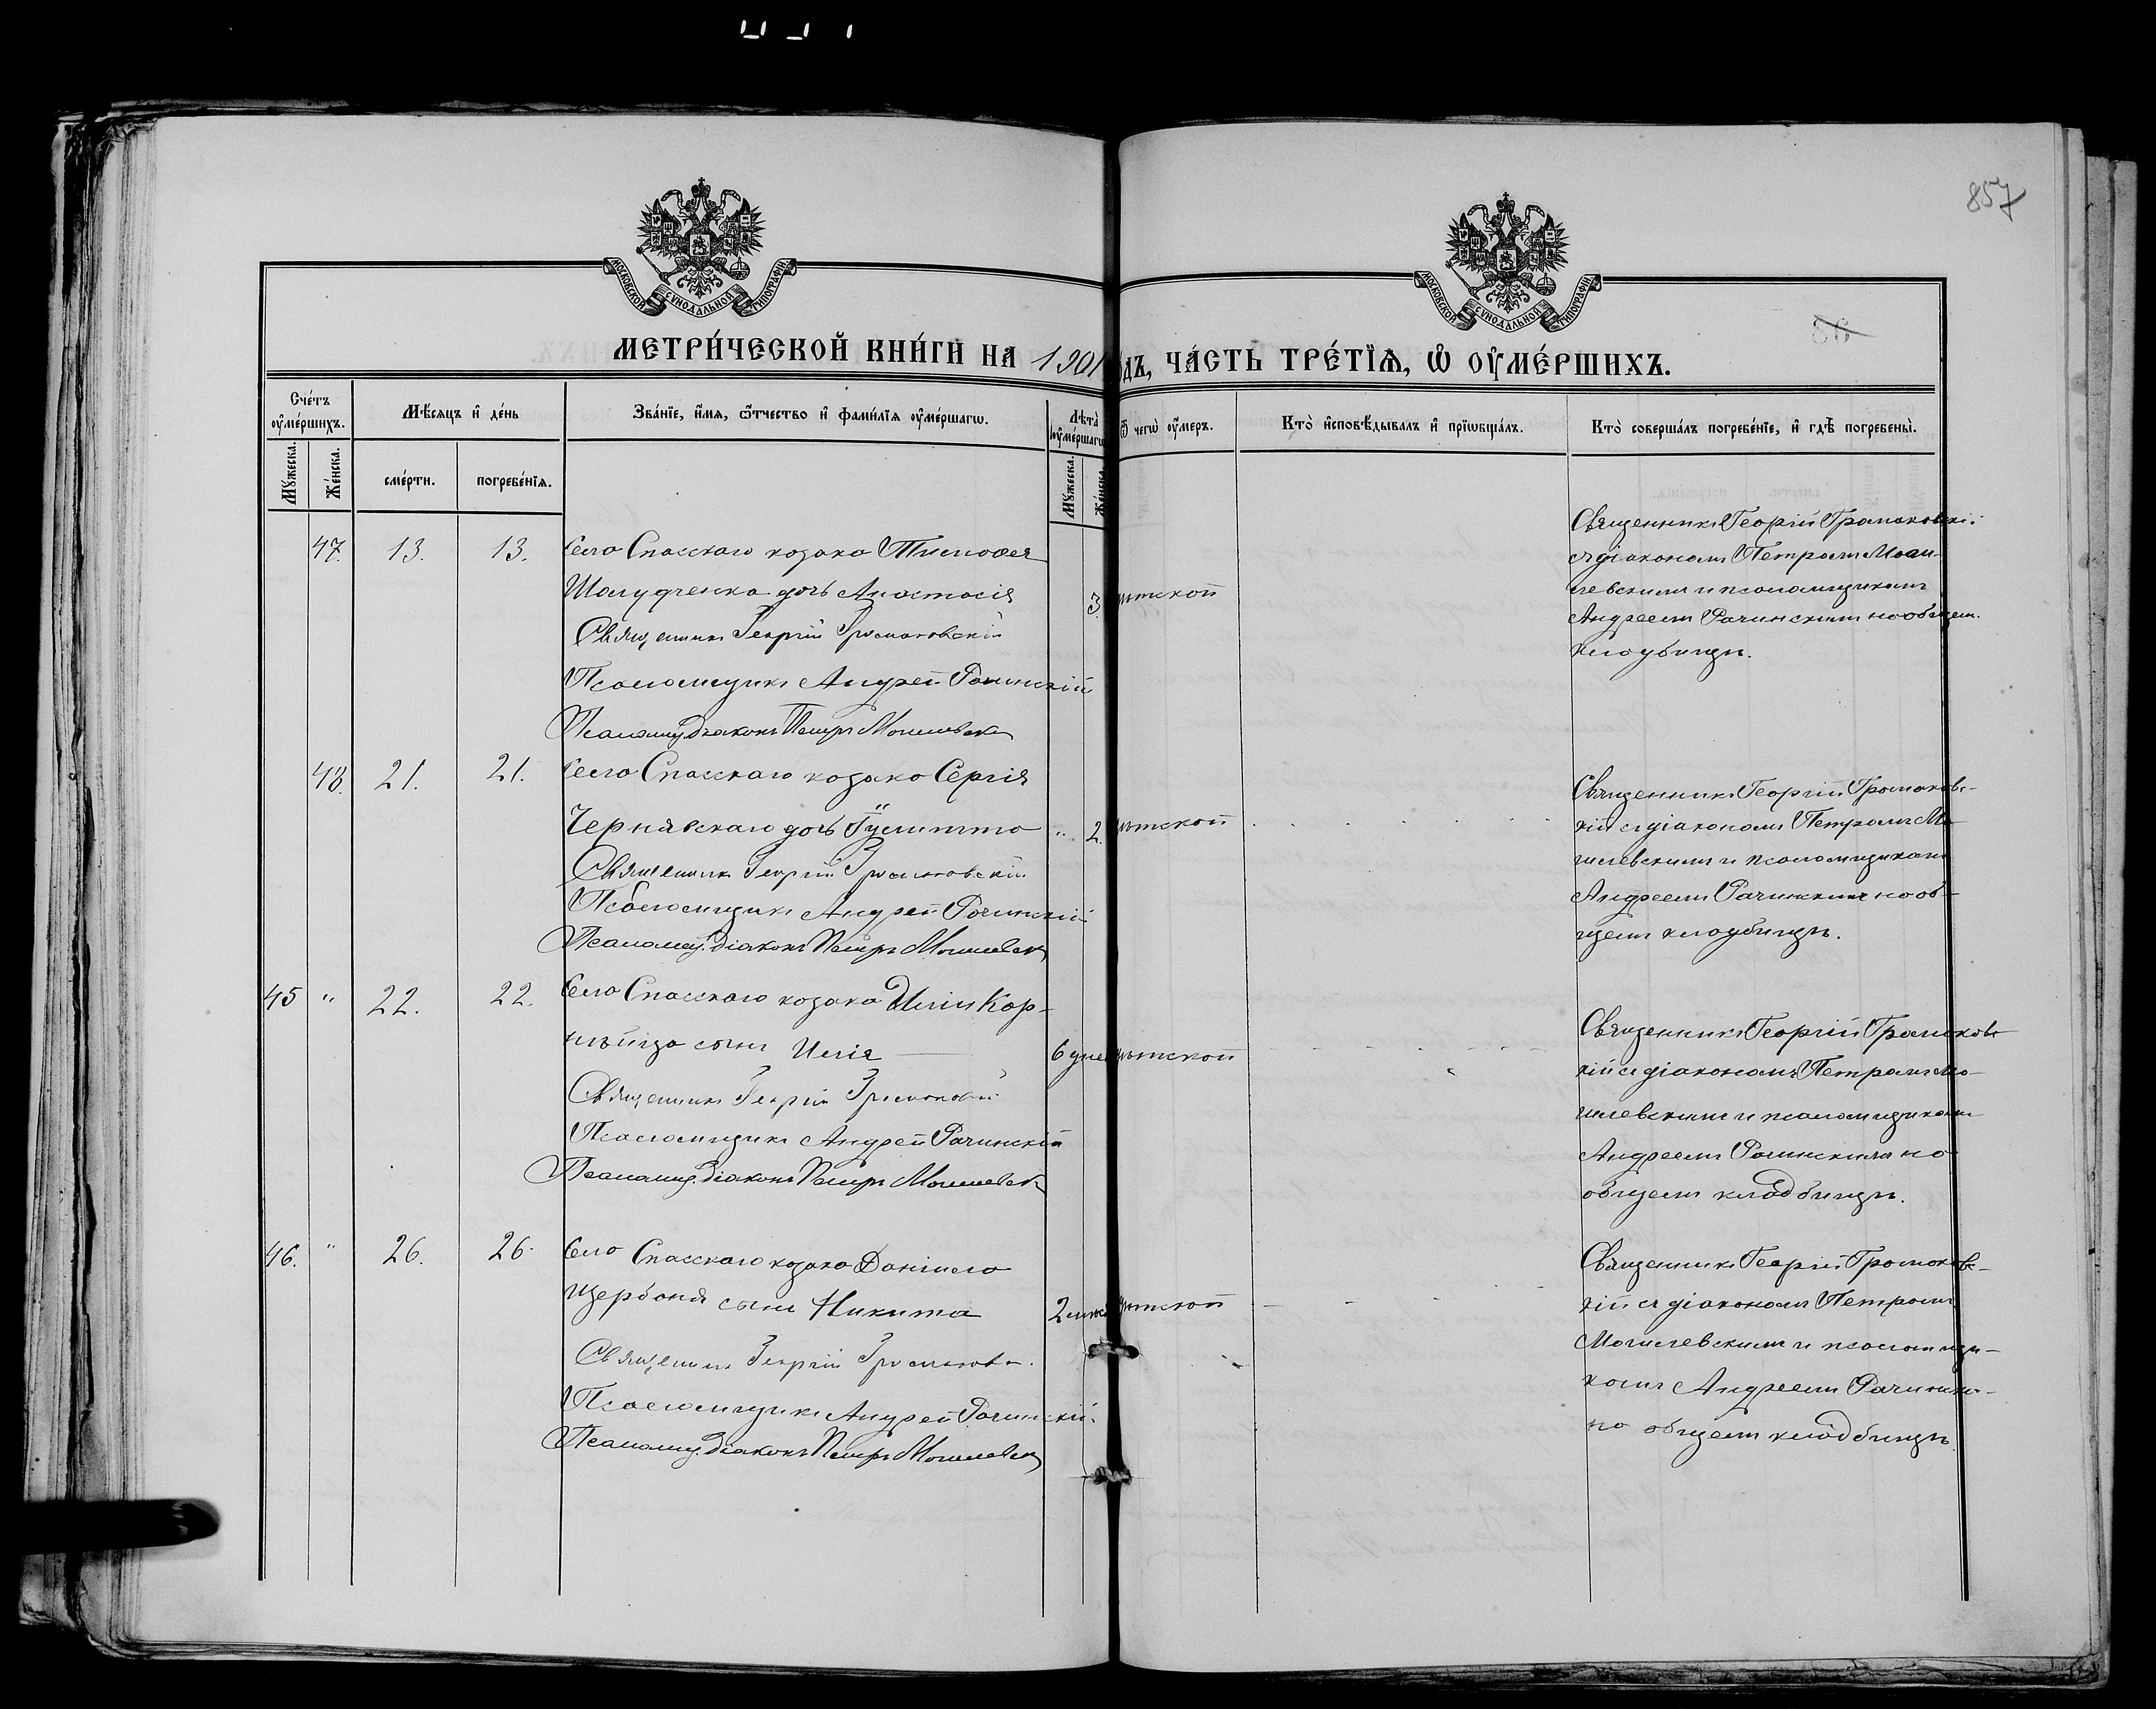 857
МОСКОВСКОЙ СѴНОДАЛЬНОЙ ТИПОГРАФІИ
МОСКОВСКОЙ СѴНОДАЛЬНОЙ ТИПОГРАФІИ
МЕТРИ́ЧЕСКОЙ КНИ́ГИ НА 1901
ДЪ, ЧА́СТЬ ТРЕ́ТІѦ, Ѡ ОУМЕ́РШИХЪ.
Сче́тъ оуме́ршихъ.
Мѣсяцъ и де́нь
Зва́нїе, и́мѧ, ѿтчество и фами́лїѧ оуме́ршагѡ.
Лѣта̀ оуме́ршагѡ
Ѿ чегѡ̀ оу́меръ.
Кто̀ исповѣ́дывалъ и прїѡбща́лъ.
Кто̀ соверша́лъ погребе́нїе, и гдѣ̀ погребены̀.
Мꙋ́жеска.
Же́нска.
сме́рти.
погребе́нїѧ.
Мꙋ́жеска.
Же́нска.
47. 13. 13. Села Спасскаго козака Тимофея
дочь Анастасія 3.
Священникъ Георгій Громаковскій
Псаломщикъ Андрей Рачинскій
Псаломщ. Діаконъ Петръ Могилевск
Священникъ Георгій Громаковскі
съ діакономъ Петромъ Моги-
левскимъ и псаломщикомъ
Андреемъ Рачинскимъ на общем.
кладбищѣ.
48. 21. 21. Села Спасскаго козака Сергія
Чернявскаго дочь " 2.
Священникъ Георгій Громаковскій
Псаломщикъ Андрей Рачинскій
Псаломщ. Діаконъ Петръ Могилевск
Священникъ Георгій Громаковс-
кій съ діакономъ Петромъ Мо-
гилевскимъ и псаломщикомъ
Андреемъ Рачинскимъ на об-
щемъ кладбищѣ.
45 " 22. 22. Села Спасскаго козака Иліи Кор-
нѣйца сынъ Илія 6 дне
Священникъ Георгій
Псаломщикъ Андрей Рачинскій
Псаломщ. Діаконъ Петръ Могилевск
Священникъ Георгій Громаковс
кій съ діакономъ Петромъ Мо-
гилевскимъ и псаломщикомъ
Андреемъ Рачинскимъ на
общемъ кладбищѣ.
46. " 26. 26. Села Спасскаго козака Даніила
Щербаня сынъ Никита 2 мѣс
Священникъ Георгій Громаковс
Псаломщикъ Андрей Рачинскій.
Псаломщ. Діаконъ Петръ Могилевск
Священникъ Георгій Громаковс-
кій съ діакономъ Петромъ
Могилевскимъ и псаломщи-
комъ Андреемъ
на общемъ кладбищѣ